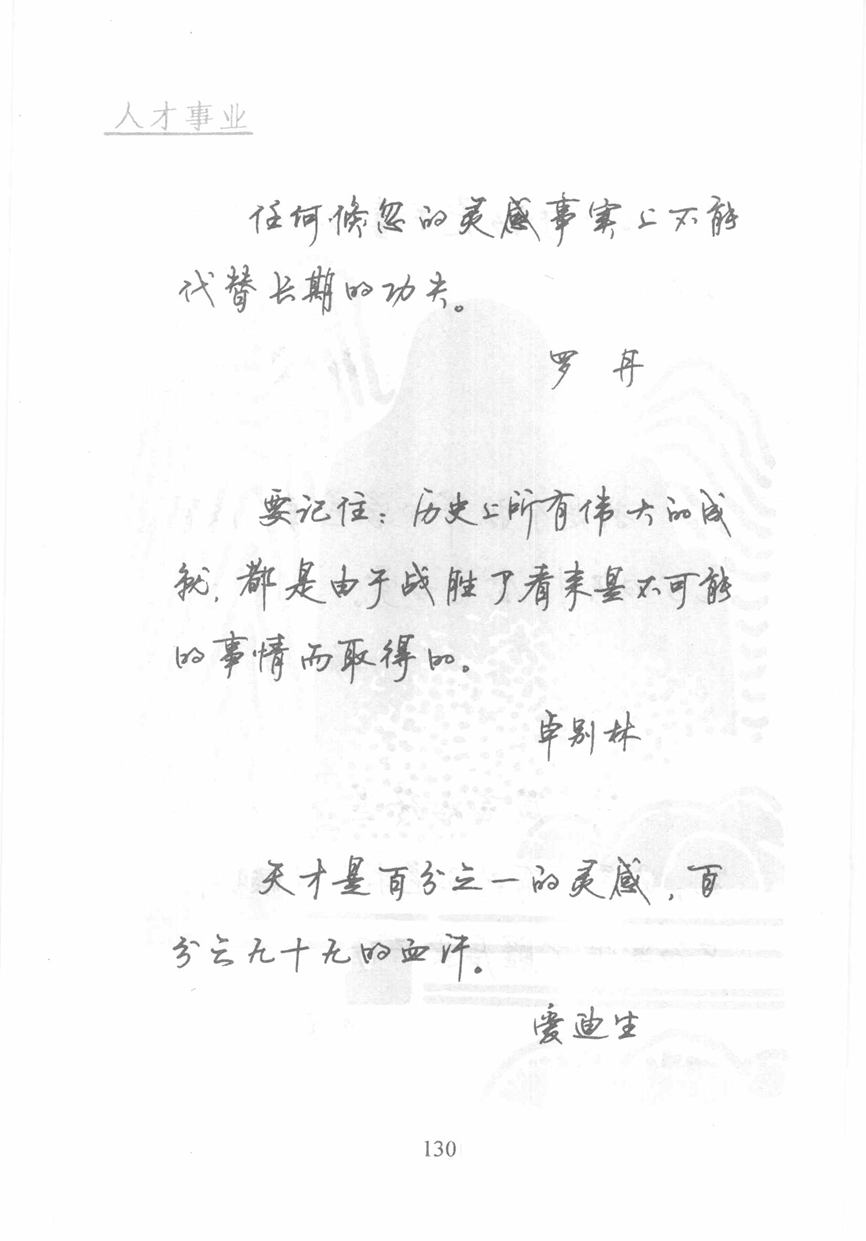 人才事业
任何倏忽的灵感事实上不能
代替长期的功夫。
罗 丹
要记住：历史上所有伟大的成
就，都是由于战胜了看来是不可能
的事情而取得的。
卓别林
天才是百分之一的灵感，百
分之九十九的血汗。
爱迪生
130